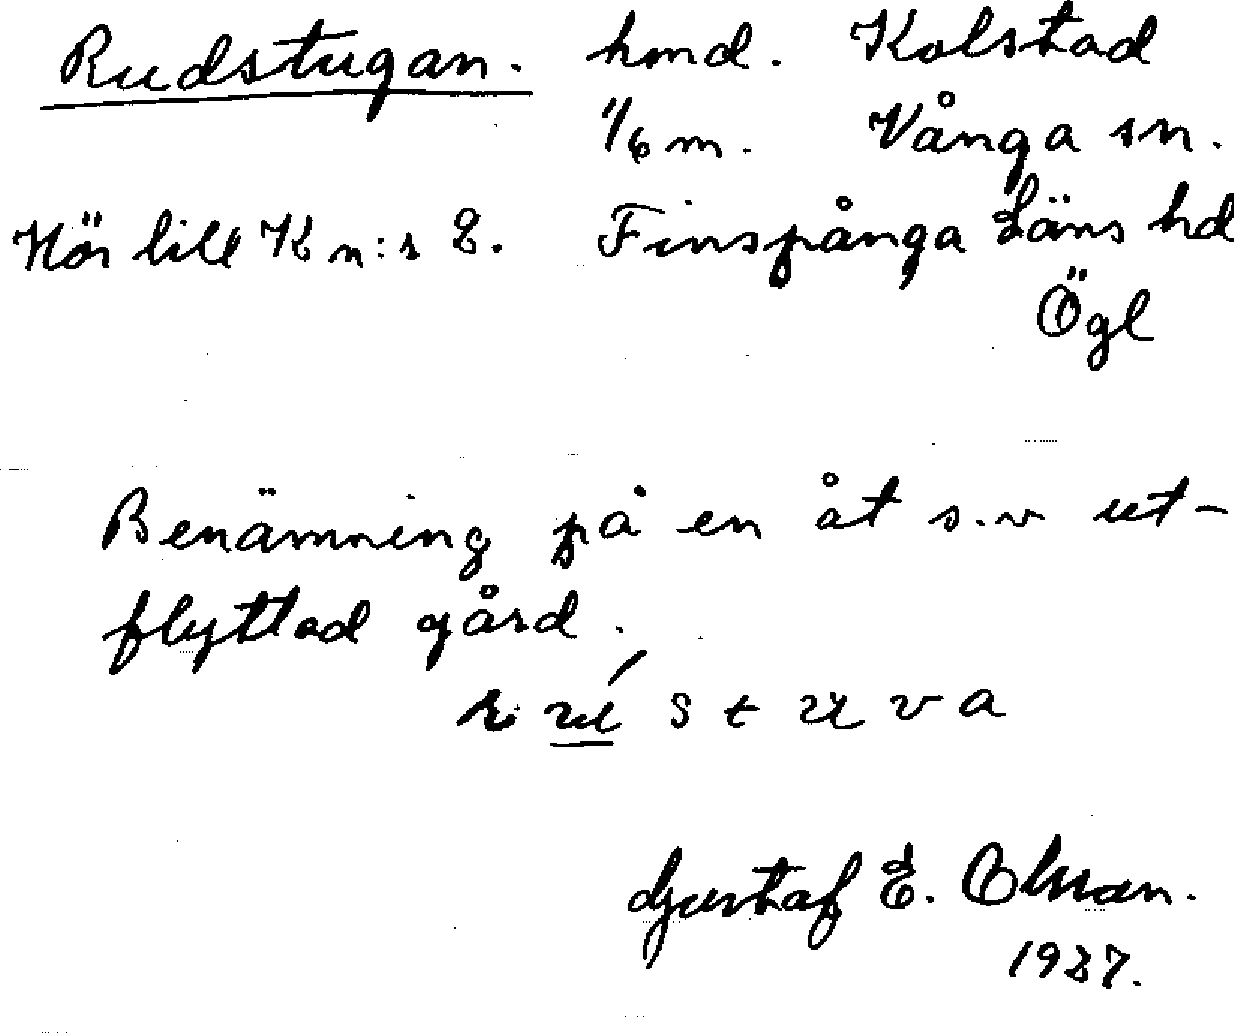 Rudstugan. hmd. Kolstad
1/6 m. Vånga sn.
Hör till K n:s 2. Finspånga Läns hd
Ögl
Benämning på en åt s.v ut-
flyttad gård.
r ú s t u v a
Gustaf E. Olsson.
1937.